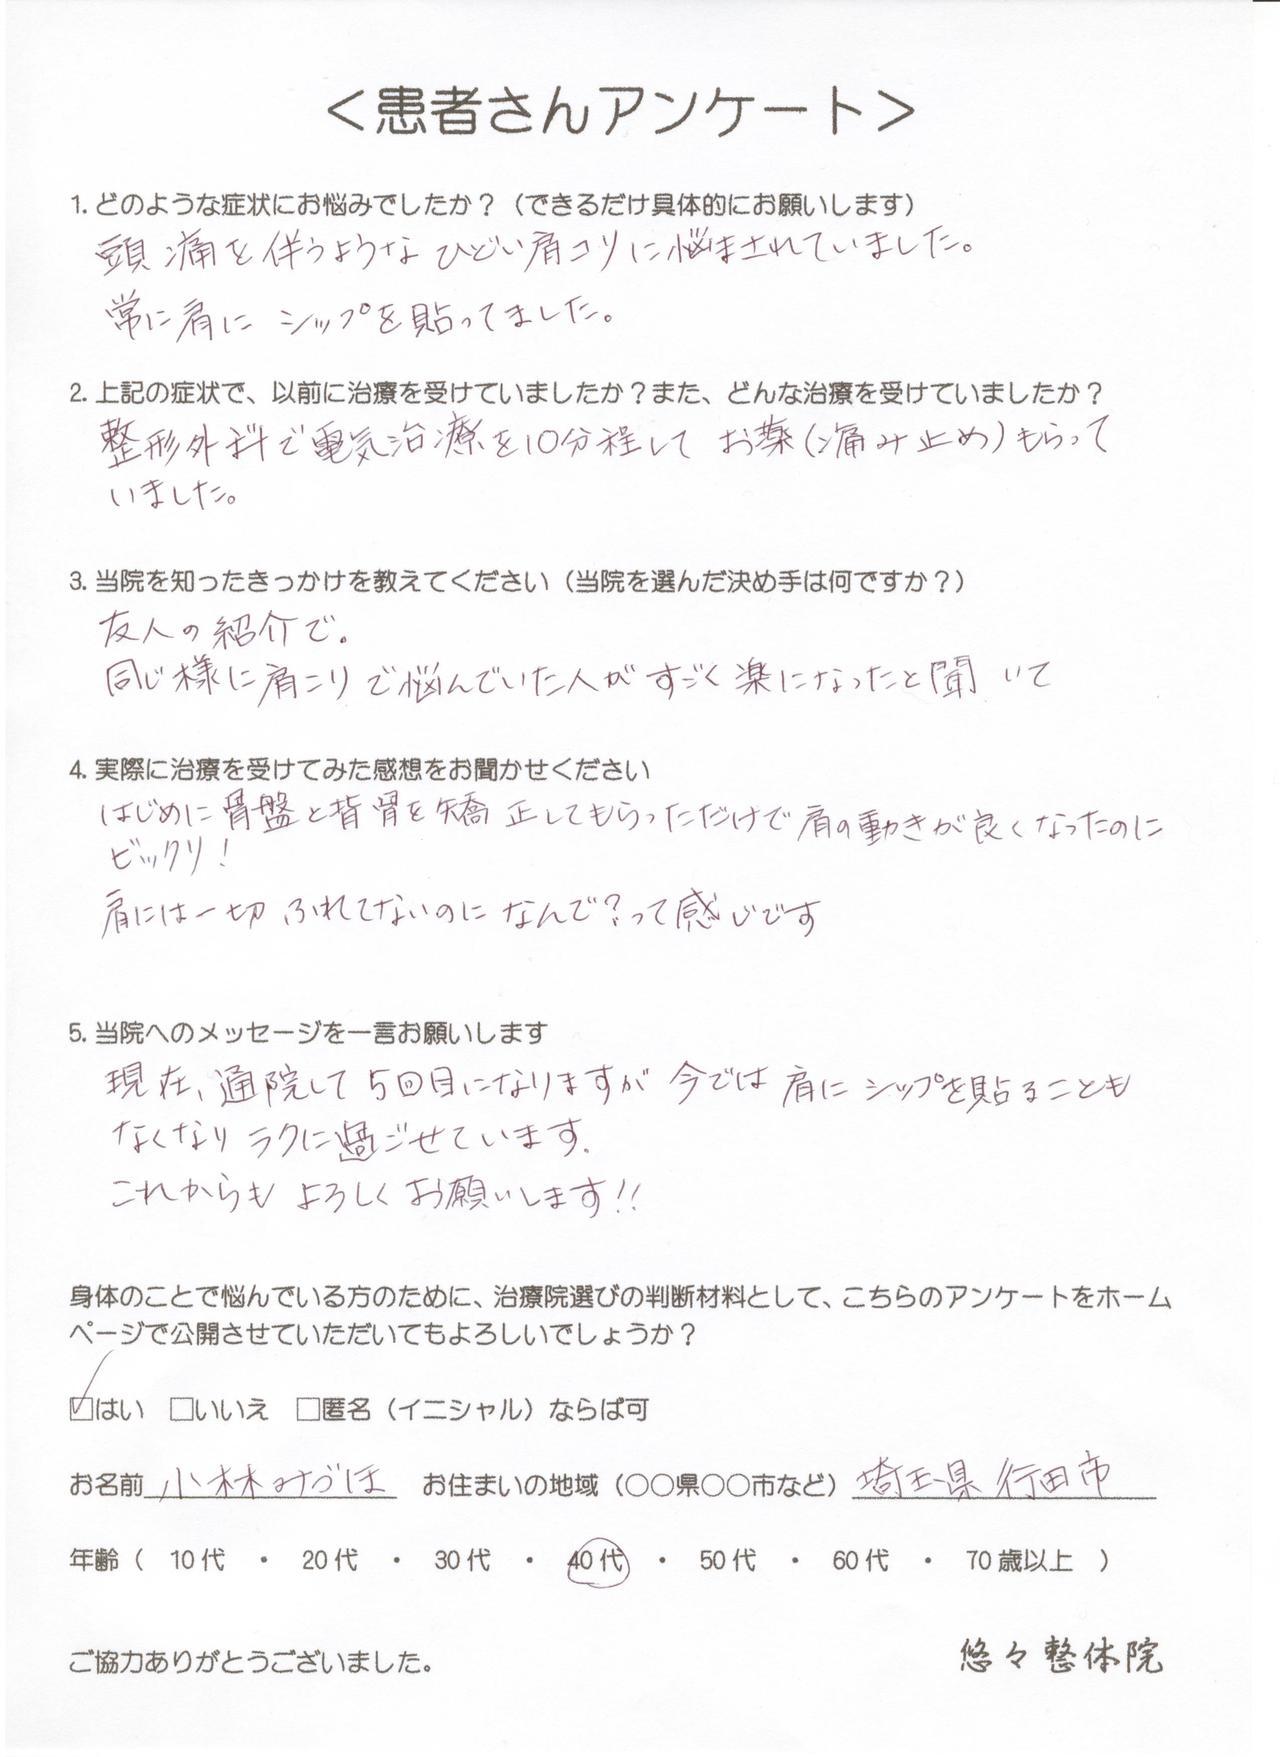 ＜患者さんアンケート＞
1. どのような症状にお悩みでしたか？（できるだけ具体的にお願いします）
頭痛を伴うような ひどい肩コリに悩まされていました。
常に肩に シップを貼ってました。
2. 上記の症状で、以前に治療を受けていましたか？また、どんな治療を受けていましたか？
整形外科で電気治療を10分程して お薬（痛み止め）もらって
いました。
3. 当院を知ったきっかけを教えてください（当院を選んだ決め手は何ですか？）
友人の紹介で。
同じ様に肩こりで悩んでいた人が すごく楽になったと聞いて
4. 実際に治療を受けてみた感想をお聞かせください
はじめに骨盤と背骨を矯正してもらっただけで肩の動きが良くなったのに
ビックリ！
肩には一切 ふれてないのに なんで？って感じです
5. 当院へのメッセージを一言お願いします
現在、通院して 5回目になりますが 今では 肩に シップを貼ることも
なくなり ラクに過ごせています.
これからも よろしく お願いします!!
身体のことで悩んでいる方のために、治療院選びの判断材料として、こちらのアンケートをホーム
ページで公開させていただいてもよろしいでしょうか？
☑はい □いいえ □匿名（イニシャル）ならば可
お名前 小林みづほ お住まいの地域（○○県○○市など）埼玉県 行田市
年齢（ 10代 ・ 20代 ・ 30代 ・ 40代 ・ 50代 ・ 60代 ・ 70歳以上 ）
ご協力ありがとうございました。 悠々整体院